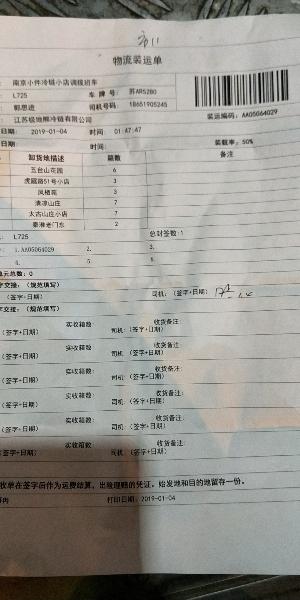 物流装运单
南京小件冷链小店调拨班车
L725 车 牌 号: 苏AR52B0
郭思进 司机号码: 18651905245
江苏极地熊冷链有限公司 装运编码: AA05064029
日期: 2019-01-04 时间 01:47:47
日期: 时间: 装载率: 50%
卸货地描述 箱数 备注
五台山花园 6
虎踞路51号小店 3
凤栖苑 3
清凉山庄 7
太古山庄小店 7
秦淮老门东 2
L725 总封签数:1
1.AA05064029 2. 3.
4. 5. 6.
单元总数: 0
字交接: (规范填写)
(签字+日期) 司机: (签字+日期)
字交接: (规范填写)
实收箱数: 收货备注:
(签字+日期) 司机: (签字+日期)
实收箱数: 收货备注:
(签字+日期) 司机: (签字+日期)
实收箱数: 收货备注:
(签字+日期) 司机: (签字+日期)
实收箱数: 收货备注:
(签字+日期) 司机: (签字+日期)
实收箱数: 收货备注:
(签字+日期) 司机: (签字+日期)
收单在签字后作为运费结算, 出险理赔的凭证。始发地和目的地留存一份。
打印日期: 2019-01-04